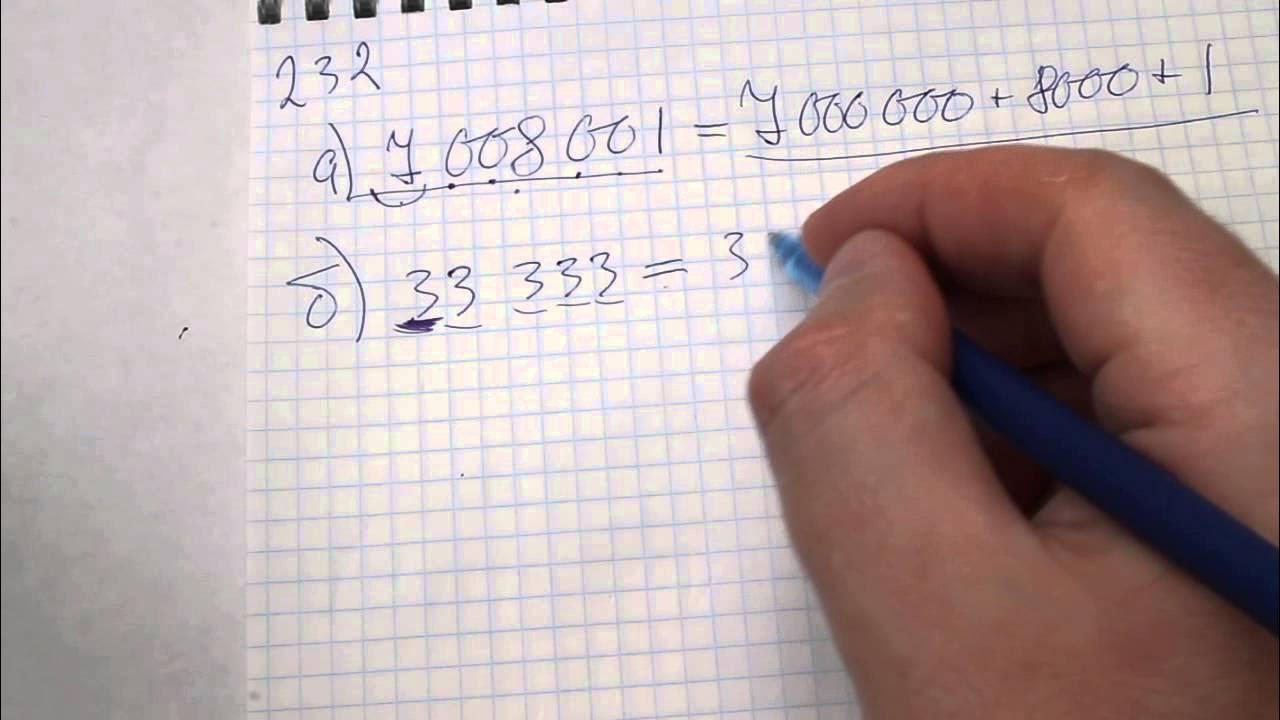 232
а) 7 008 001 = 7 000 000 + 8000 + 1
б) 33 333 = 3